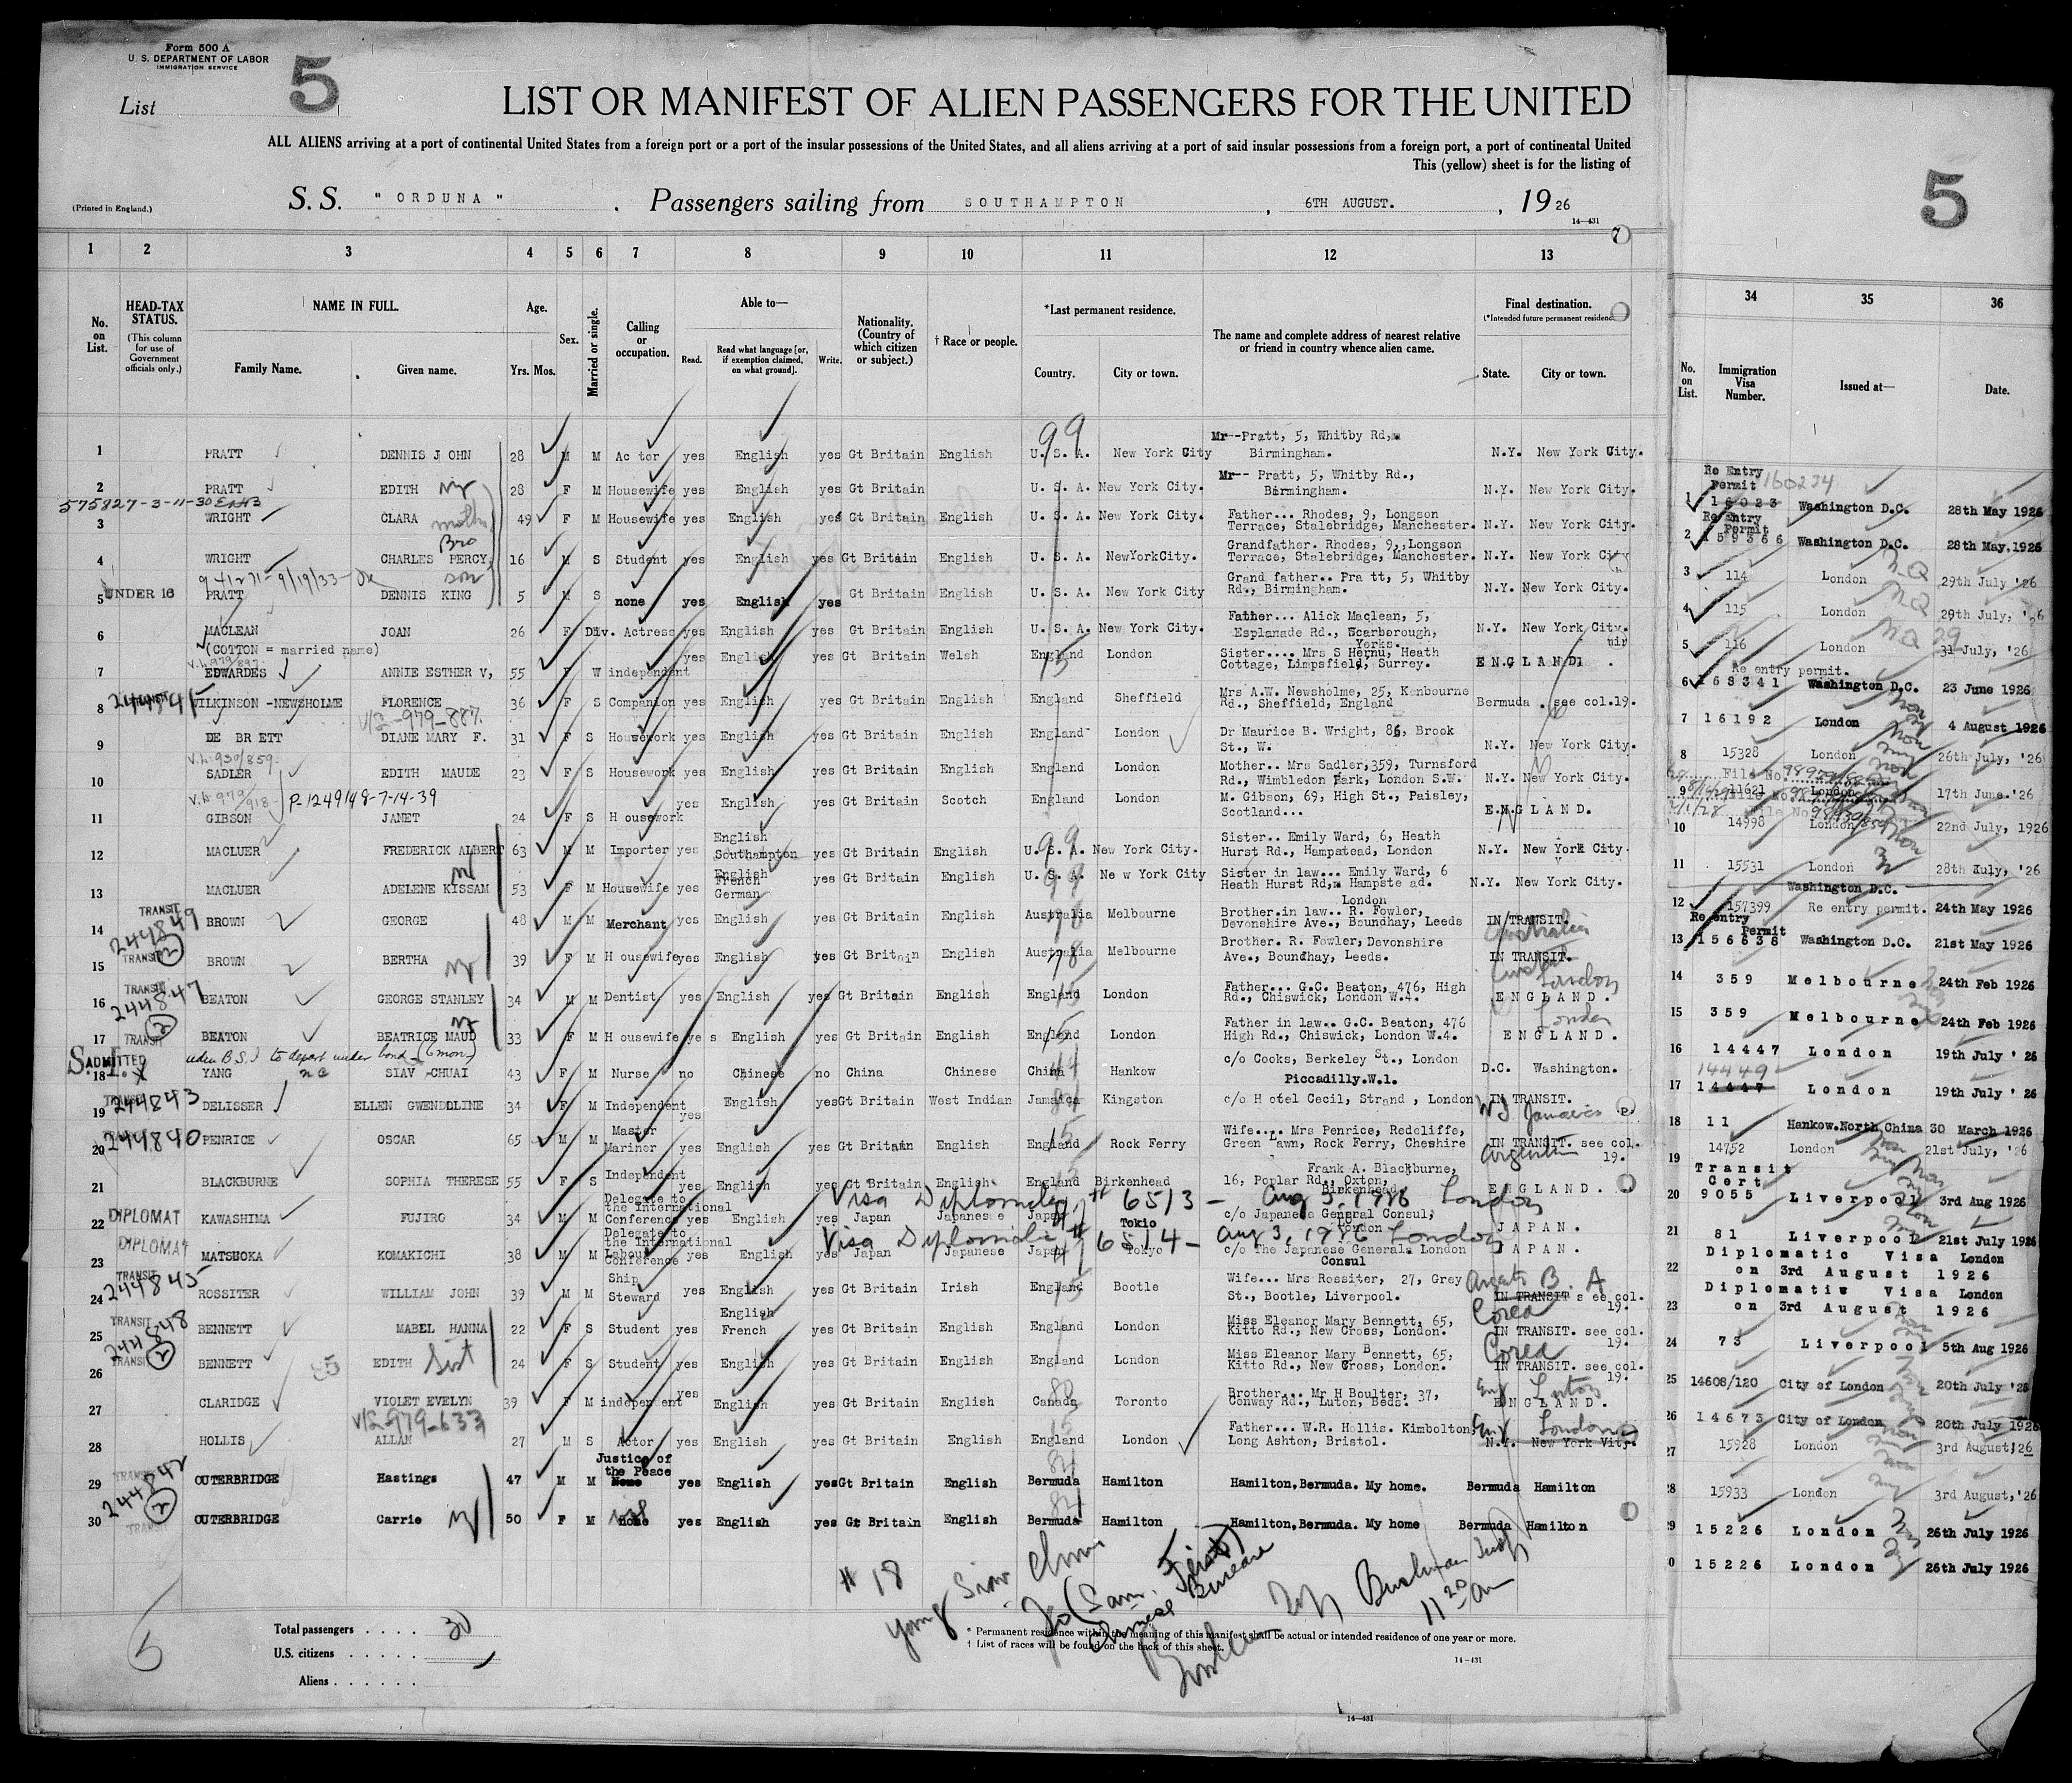 Form 500 A
U. S. DEPARTMENT OF LABOR
IMMIGRATION SERVICE
List 5
LIST OR MANIFEST OF ALIEN PASSENGERS FOR THE UNITED
ALL ALIENS arriving at a port of continental United States from a foreign port or a port of the insular possessions of the United States, and all aliens arriving at a port of said insular possessions from a foreign port, a port of continental United
This (yellow) sheet is for the listing of
(Printed in England.)
S. S. "ORDUNA" . Passengers sailing from SOUTHAMPTON , 6TH AUGUST. , 1926
14-431
1 2 3 4 5 6 7 8 9 10 11 12 13
No. on List.
HEAD-TAX STATUS.
(This column for use of Government officials only.)
NAME IN FULL.
Family Name. Given name.
Age.
Yrs. Mos.
Sex.
Married or single.
Calling or occupation.
Able to—
Read. Read what language [or, if exemption claimed, on what ground]. Write.
Nationality. (Country of which citizen or subject.)
† Race or people.
*Last permanent residence.
Country. City or town.
The name and complete address of nearest relative or friend in country whence alien came.
Final destination.
(*Intended future permanent residence
State. City or town.
1 PRATT DENNIS JOHN 28 M M Actor yes English yes Gt Britain English U. S. A. New York City Mr--Pratt, 5, Whitby Rd, Birmingham. N.Y. New York City.
2 PRATT EDITH 28 F M Housewife yes English yes Gt Britain U. S. A. New York City. Mr-- Pratt, 5, Whitby Rd., Birmingham. N.Y. New York City.
575827-3-11-30
3 WRIGHT CLARA 49 F M Housewife yes English yes Gt Britain English U. S. A. New York City. Father... Rhodes, 9, Longson Terrace, Stalebridge, Manchester. N.Y. New York City.
Bro
4 WRIGHT CHARLES PERCY, 16 M S Student yes English yes Gt Britain English U. S. A. NewYorkCity. Grandfather. Rhodes, 9,,Longson Terrace, Stalebridge, Manchester. N.Y. New York City
son
5 UNDER 16 PRATT DENNIS KING 5 M S none yes English yes Gt Britain English U. S. A. New York City Grand father.. Pratt, 5, Whitby Rd., Birmingham. N.Y. New York City.
6 MACLEAN JOAN 26 F Div. Actress yes English yes Gt Britain English U.S.A. New York City. Father... Alick Maclean, 5, Esplanade Rd., Scarborough, Yorks. N.Y. New York City.
(COTTON = married name)
7 EDWARDES ANNIE ESTHER V, 55 F W independent yes English yes Gt Britain Welsh England London Sister.... Mrs S Hernu, Heath Cottage, Limpsfield, Surrey. ENGLAND.
8 WILKINSON -NEWSHOLME FLORENCE 36 F S Companion yes English yes Gt Britain English England Sheffield Mrs A.W. Newsholme, 25, Kenbourne Rd., Sheffield, England Bermuda . see col.19.
V/S-979-887.
9 DE BRETT DIANE MARY F. 31 F S Housework yes English yes Gt Britain English England London Dr Maurice B. Wright, 86, Brook St., W. N.Y. New York City.
10 SADLER EDITH MAUDE 23 F S Housework yes English yes Gt Britain English England London Mother.. Mrs Sadler,359, Turnsford Rd., Wimbledon Park, London S.W. N.Y. New York City.
P-1249148-7-14-39
11 GIBSON JANET 24 F S Housework yes English yes Gt Britain Scotch England London M. Gibson, 69, High St., Paisley, Scotland... ENGLAND.
12 MACLUER FREDERICK ALBERT 63 M M Importer yes English Southampton yes Gt Britain English U. S. A. New York City. Sister.. Emily Ward, 6, Heath Hurst Rd., Hampstead, London N.Y. New York City.
13 MACLUER ADELENE KISSAM 53 F M Housewife yes English French German yes Gt Britain English U. S. A. New York City Sister in law... Emily Ward, 6 Heath Hurst Rd, Hampstead. London N.Y. New York City.
14 TRANSIT 244849 BROWN GEORGE 48 M M Merchant yes English yes Gt Britain English Australia Melbourne Brother.in law.. R. Fowler, Devonshire Ave., Boundhay, Leeds IN TRANSIT. Australia
15 TRANSIT (2) BROWN BERTHA 39 F M Housewife yes English yes Gt Britain English Australia Melbourne Brother. R. Fowler, Devonshire Ave., Boundhay, Leeds. IN TRANSIT.
16 TRANSIT 244847 BEATON GEORGE STANLEY 34 M M Dentist yes English yes Gt Britain English England London Father... G.C. Beaton, 476, High Rd., Chiswick, London W.4. ENGLAND. London
17 (2) TRANSIT BEATON BEATRICE MAUD 33 F M Housewife yes English yes Gt Britain English England London Father in law.. G.C. Beaton, 476 High Rd., Chiswick, London W.4. ENGLAND. London
ADMITTED under B.S.I to depart under bond (6 mon)
18 YANG SIAV -CHUAI 43 F M Nurse no Chinese no China Chinese China Hankow c/o Cooks, Berkeley St., London Piccadilly.W.1. D.C. Washington.
19 244843 DELISSER ELLEN GWENDOLINE 34 F M Independent yes English yes Gt Britain West Indian Jamaica Kingston c/o Hotel Cecil, Strand , London IN TRANSIT. W I Jamaica
20 244840 PENRICE OSCAR 65 M M Master Mariner yes English yes Gt Britain English England Rock Ferry Wife.... Mrs Penrice, Redcliffe, Green Lawn, Rock Ferry, Cheshire IN TRANSIT. see col. 19. Argentine
21 BLACKBURNE SOPHIA THERESE 55 F S Independent yes English yes Gt Britain English England Birkenhead Frank A. Blackburne, 16, Poplar Rd., Oxton, Birkenhead. ENGLAND.
Visa Diplomatic, # 6513 - Aug 3, 1926 London
22 DIPLOMAT KAWASHIMA FUJIRO 34 M M Delegate to the International Conference yes English yes Japan Japanese Japan Tokio c/o Japanese General Consul, London JAPAN.
Visa Diplomatic # 6514 - Aug 3, 1926 London
23 DIPLOMAT MATSUOKA KOMAKICHI 38 M M Delegate to the International Labour Conference yes English yes Japan Japanese Japan Tokyo c/o The Japanese General London Consul JAPAN.
24 TRANSIT 244845 ROSSITER WILLIAM JOHN 39 M M Ship Steward yes English yes Gt Britain Irish England Bootle Wife... Mrs Rossiter, 27, Grey St., Bootle, Liverpool. B. A IN TRANSIT see col. 19.
25 TRANSIT 244848 BENNETT MABEL HANNA 22 F S Student yes English French yes Gt Britain English England London Miss Eleanor Mary Bennett, 65, Kitto Rd., New Cross, London. Corea IN TRANSIT. see col. 19.
26 TRANSIT (2) BENNETT EDITH Sist 24 F S Student yes English yes Gt Britain English England London Miss Eleanor Mary Bennett, 65, Kitto Rd., New Cross, London. Corea IN TRANSIT. see col. 19.
27 CLARIDGE VIOLET EVELYN 39 F M independent yes English yes Gt Britain English Canada Toronto Brother... Mr H Boulter, 37, Conway Rd., Luton, Beds. Eng Luton ENGLAND.
V/S-979-633
28 HOLLIS ALLAN 27 M S Actor yes English yes Gt Britain English England London Father... W.R. Hollis. Kimbolton, Long Ashton, Bristol. Eng London N.Y. New York Vity.
29 TRANSIT 244842 OUTERBRIDGE Hastings 47 M M Justice of the Peace None yes English yes Gt Britain English Bermuda Hamilton Hamilton,Bermuda. My home. Bermuda Hamilton
30 (2) TRANSIT OUTERBRIDGE Carrie 50 F M none yes English yes Gt Britain English Bermuda Hamilton Hamilton,Bermuda. My home Bermuda Hamilton
# 18
Chinese Bureau
11 20 am
Total passengers . . . . 30
U.S. citizens . . . . . .
Aliens . . . . . .
5
* Permanent residence within the meaning of this manifest shall be actual or intended residence of one year or more.
† List of races will be found on the back of this sheet.
14-431
14-431
5
34 35 36
No. on List. Immigration Visa Number. Issued at— Date.
1 Re Entry Permit 160234 16023 Washington D.C. 28th May 1926
2 Re Entry Permit 159366 Washington D.C. 28th May.1926
3 114 London 29th July '26
4 115 London 29th July, '26
5 116 London 31 July, '26
6 Re entry permit. 168341 Washington D.C. 23 June 1926
7 16192 London 4 August 1926
8 15328 London 26th July, '26
9 File No. 11621 London 17th June.'26
10 File No. 14998 London 22nd July, 1926
11 15531 London 28th July, '26
12 157399 Washington D.C. Re entry permit. 24th May 1926
13 Re entry Permit 156638 Washington D.C. 21st May 1926
14 359 Melbourne 24th Feb 1926
15 359 Melbourne 24th Feb 1926
16 14447 London 19th July ' 26
17 14449 14447 London 19th July ' 26
18 11 Hankow.North China 30 March 1926
19 14752 London 21st July, '26
20 Transit Cert 9055 Liverpool 3rd Aug 1926
21 81 Liverpool 21st July 1926
22 Diplomatic Visa London on 3rd August 1926
23 Diplomatic Visa London on 3rd August 1926
24 73 Liverpool 5th Aug 1926
25 14608/120 City of London 20th July '26
26 14673 City of London 20th July 1926
27 15928 London 3rd August,'26
28 15933 London 3rd August,'26
29 15226 London 26th July 1926
30 15226 London 26th July 1926